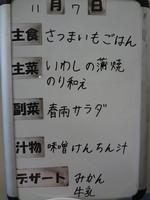 11月7日
主食 さつまいもごはん
主菜 いわしの蒲焼
のり和え
副菜 春雨サラダ
汁物 味噌けんちん汁
デザート みかん
牛乳